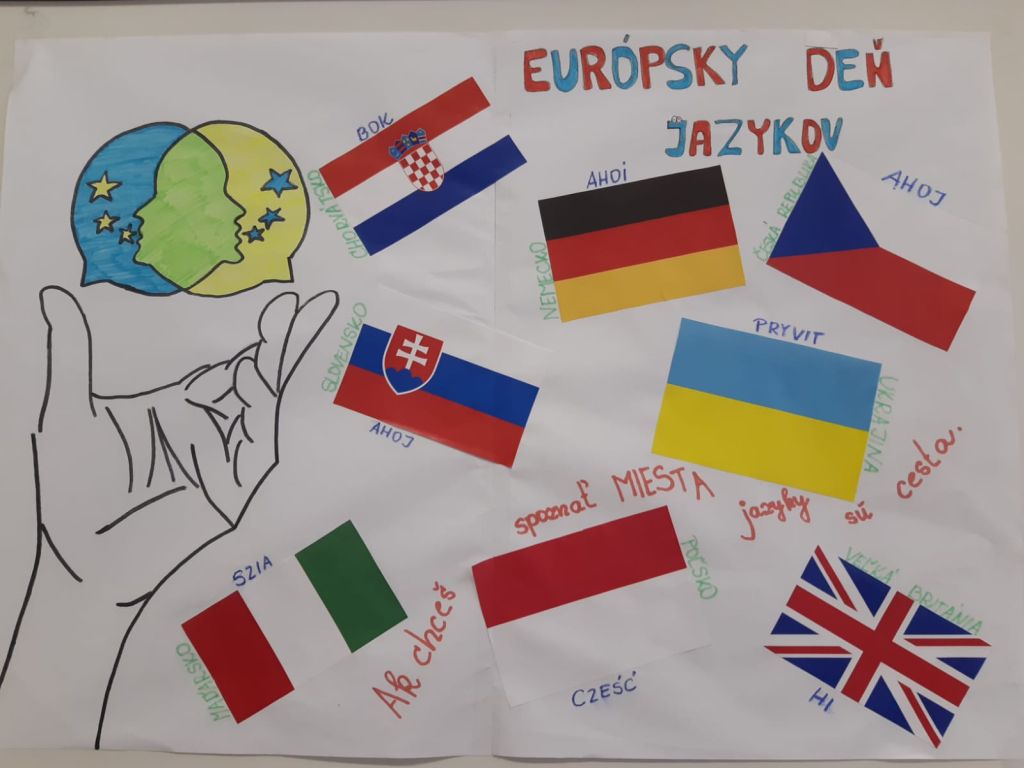 EURÓPSKY DEŇ
JAZYKOV
BOK
CHORVÁTSKO
AHOI
NEMECKO
AHOJ
ČESKÁ REPUBLIKA
SLOVENSKO
AHOJ
PRYVIT
UKRAJINA
SZIA
MAĎARSKO
Ak chceš
spoznať MIESTA
jazyky sú cesta.
POĽSKO
CZEŚĆ
VEĽKÁ BRITÁNIA
HI